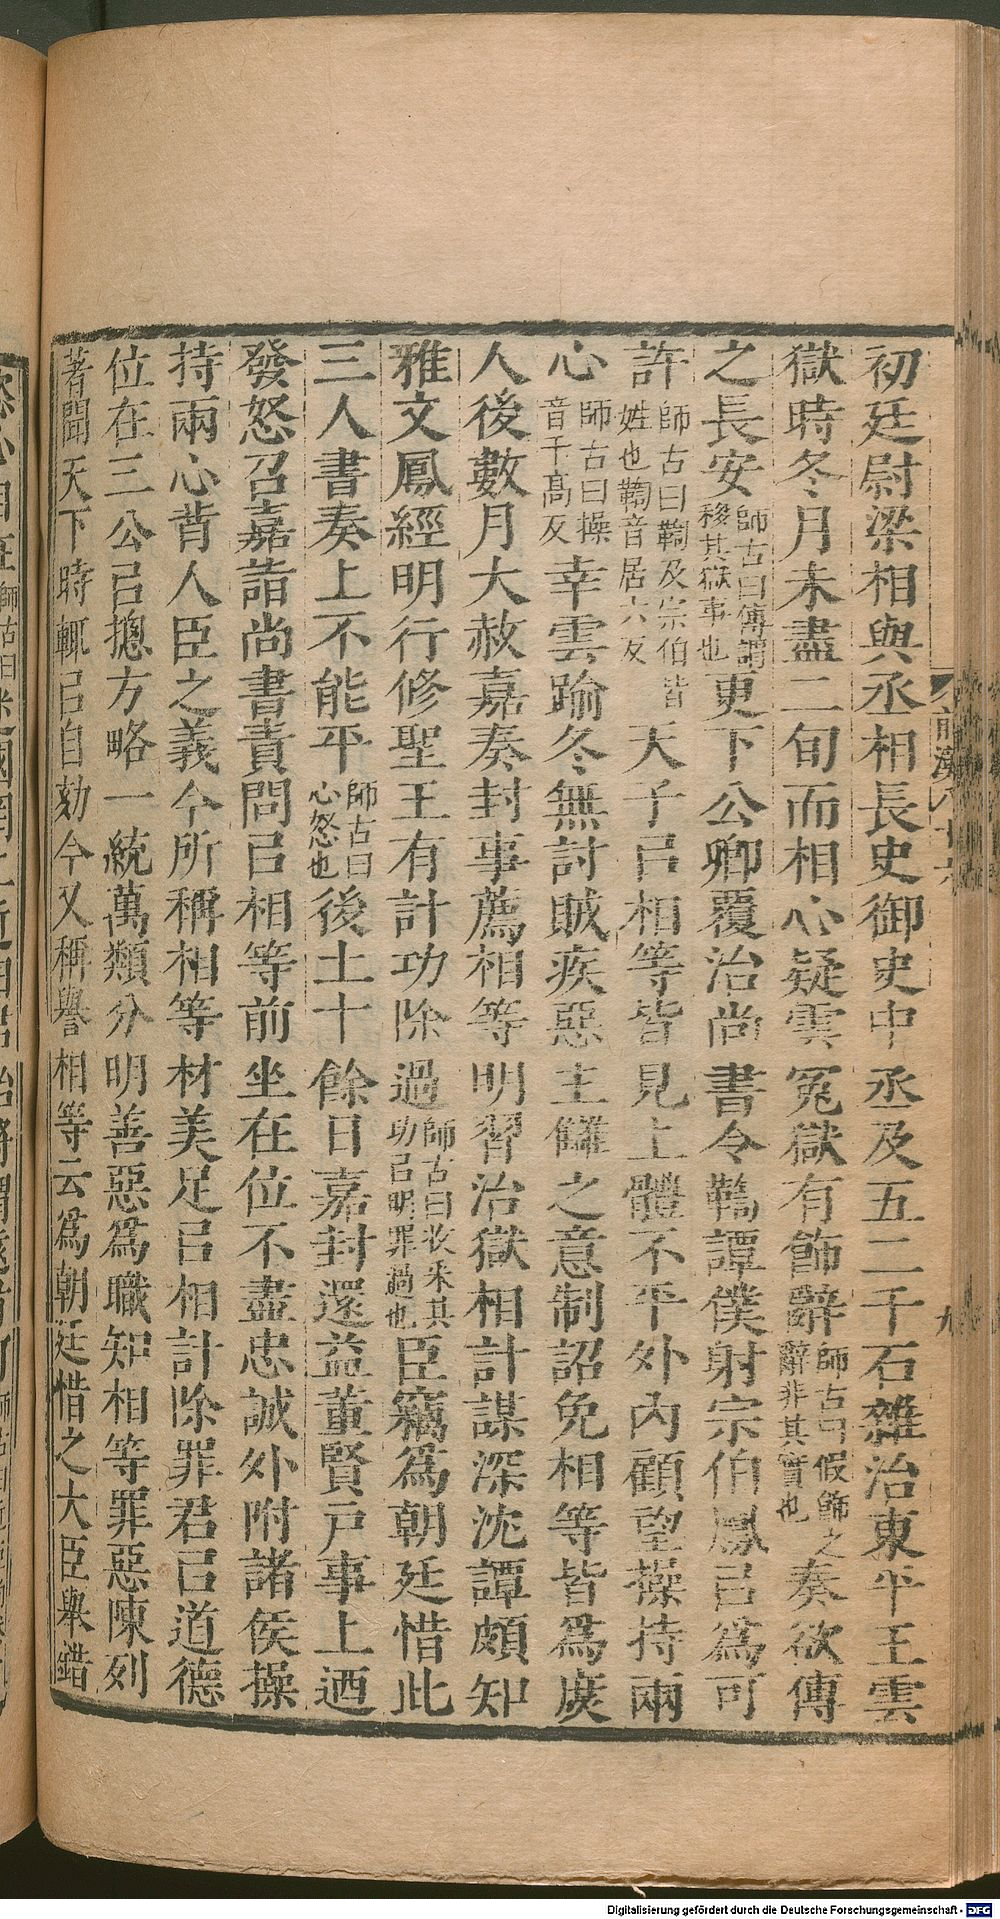 初廷尉梁相與丞相長史御史中丞及五二千石雜治東平王雲
獄時冬月未盡二旬而相心疑雲冤獄有飾辭師古曰假飾之辭非其實也奏欲傳
之長安師古曰傳謂移其獄事也更下公卿覆治尚書令鞫譚僕射宗伯鳳㠯為可
許師古曰鞫及宗伯皆姓也鞫音居六反天子㠯相等皆見上體不平外內顧望操持兩
心師古曰操音千高反幸雲踰冬無討賊疾惡主讎之意制詔免相等皆爲庶
人後數月大赦嘉奏封事薦相等明習治獄相計謀深沈譚頗知
雅文鳳經明行修聖王有計功除過師古曰收采其功㠯明罪過也臣竊爲朝廷惜此
三人書奏上不能平師古曰心怒也後二十餘日嘉封還益董賢戶事上迺
發怒召嘉詣尚書責問㠯相等前坐在位不盡忠誠外附諸侯操
持兩心背人臣之義今所稱相等材美足㠯相計除罪君㠯道德
位在三公㠯摠方略一統萬類分明善惡爲職知相等罪惡陳列
著聞天下時輒㠯自劾今又稱譽相等云爲朝廷惜之大臣舉錯
前漢八十六
九
Digitalisierung gefördert durch die Deutsche Forschungsgemeinschaft - DFG